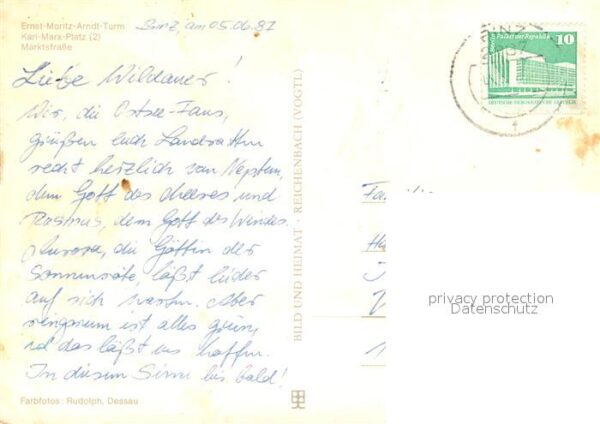 Ernst-Moritz-Arndt-Turm
Karl-Marx-Platz (2)
Marktstraße
Binz, am 05.06.81
Liebe Wildauer!
Wir, die Ostsee-Fans,
grüßen euch Landratten
recht herzlich von Neptun,
dem Gott des Meeres und
Rasmus, dem Gott des Windes.
Aurora, die Göttin der
Sonnenröte, läßt leider
auf sich warten. Aber
ringsrum ist alles grün,
und das läßt uns hoffen.
In diesem Sinne bis bald!
Farbfotos: Rudolph, Dessau
BILD UND HEIMAT · REICHENBACH (VOGTL)
Palast der Republik
10
DEUTSCHE DEMOKRATISCHE REPUBLIK
BINZ
privacy protection
Datenschutz